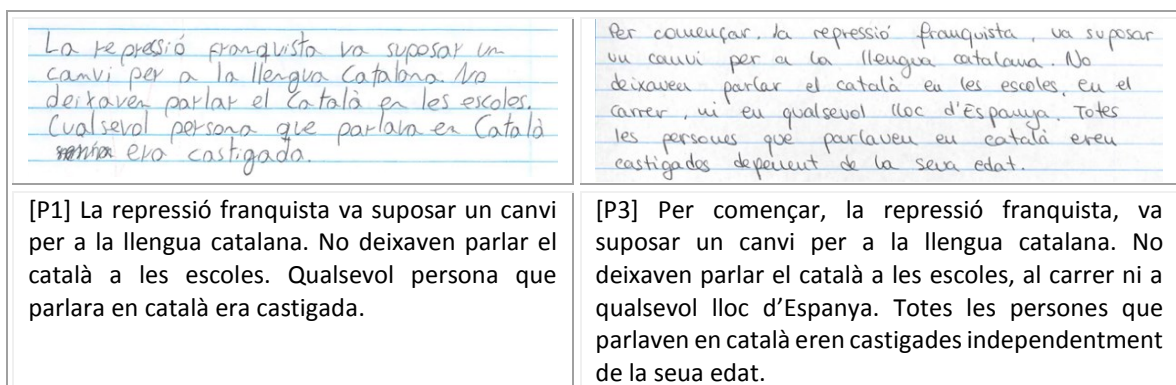 La repressió franquista va suposar un
canvi per a la llengua Catalana. No
deixaven parlar el Català en les escoles.
Cualsevol persona que parlara en Català
era castigada.
Per començar, la repressió franquista, va suposar
un canvi per a la llengua catalana. No
deixaven parlar el català en les escoles, en el
carrer, ni en qualsevol lloc d'Espanya. Totes
les persones que parlaven en català eren
castigades depenent de la seua edat.
[P1] La repressió franquista va suposar un canvi
per a la llengua catalana. No deixaven parlar el
català a les escoles. Qualsevol persona que
parlara en català era castigada.
[P3] Per començar, la repressió franquista, va
suposar un canvi per a la llengua catalana. No
deixaven parlar el català a les escoles, al carrer ni a
qualsevol lloc d’Espanya. Totes les persones que
parlaven en català eren castigades independentment
de la seua edat.